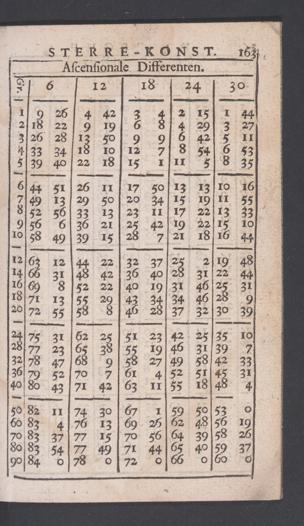 STERRE-KONST. 163
Ascensionale Differenten.
Gr. 6 12 18 24 30
1 9 26 4 42 3 4 2 15 1 44
2 18 22 9 19 6 8 4 29 3 27
3 26 28 13 50 9 9 6 42 5 11
4 33 34 18 10 12 7 8 54 6 53
5 39 40 22 18 15 1 11 5 8 35
6 44 51 26 11 17 50 13 13 10 16
7 49 13 29 50 20 34 15 19 11 55
8 52 56 33 13 23 11 17 22 13 33
9 56 6 36 21 25 42 19 22 15 10
10 58 49 39 15 28 7 21 18 16 44
12 63 12 44 22 32 37 25 2 19 48
14 66 31 48 42 36 40 28 31 22 44
16 69 8 52 22 40 19 31 46 25 31
18 71 13 55 29 43 34 34 46 28 9
20 72 55 58 8 46 28 37 32 30 39
24 75 31 62 25 51 23 42 25 35 10
28 77 23 65 38 55 19 46 31 39 7
32 78 47 68 9 58 27 49 58 42 33
36 79 52 70 7 61 4 52 51 45 31
40 80 43 71 42 63 11 55 18 48 4
50 82 11 74 30 67 1 59 50 53 0
60 83 4 76 13 69 26 62 48 56 19
70 83 37 77 15 70 56 64 39 58 26
80 83 54 77 49 71 44 65 40 59 37
90 84 0 78 0 72 0 66 0 60 0